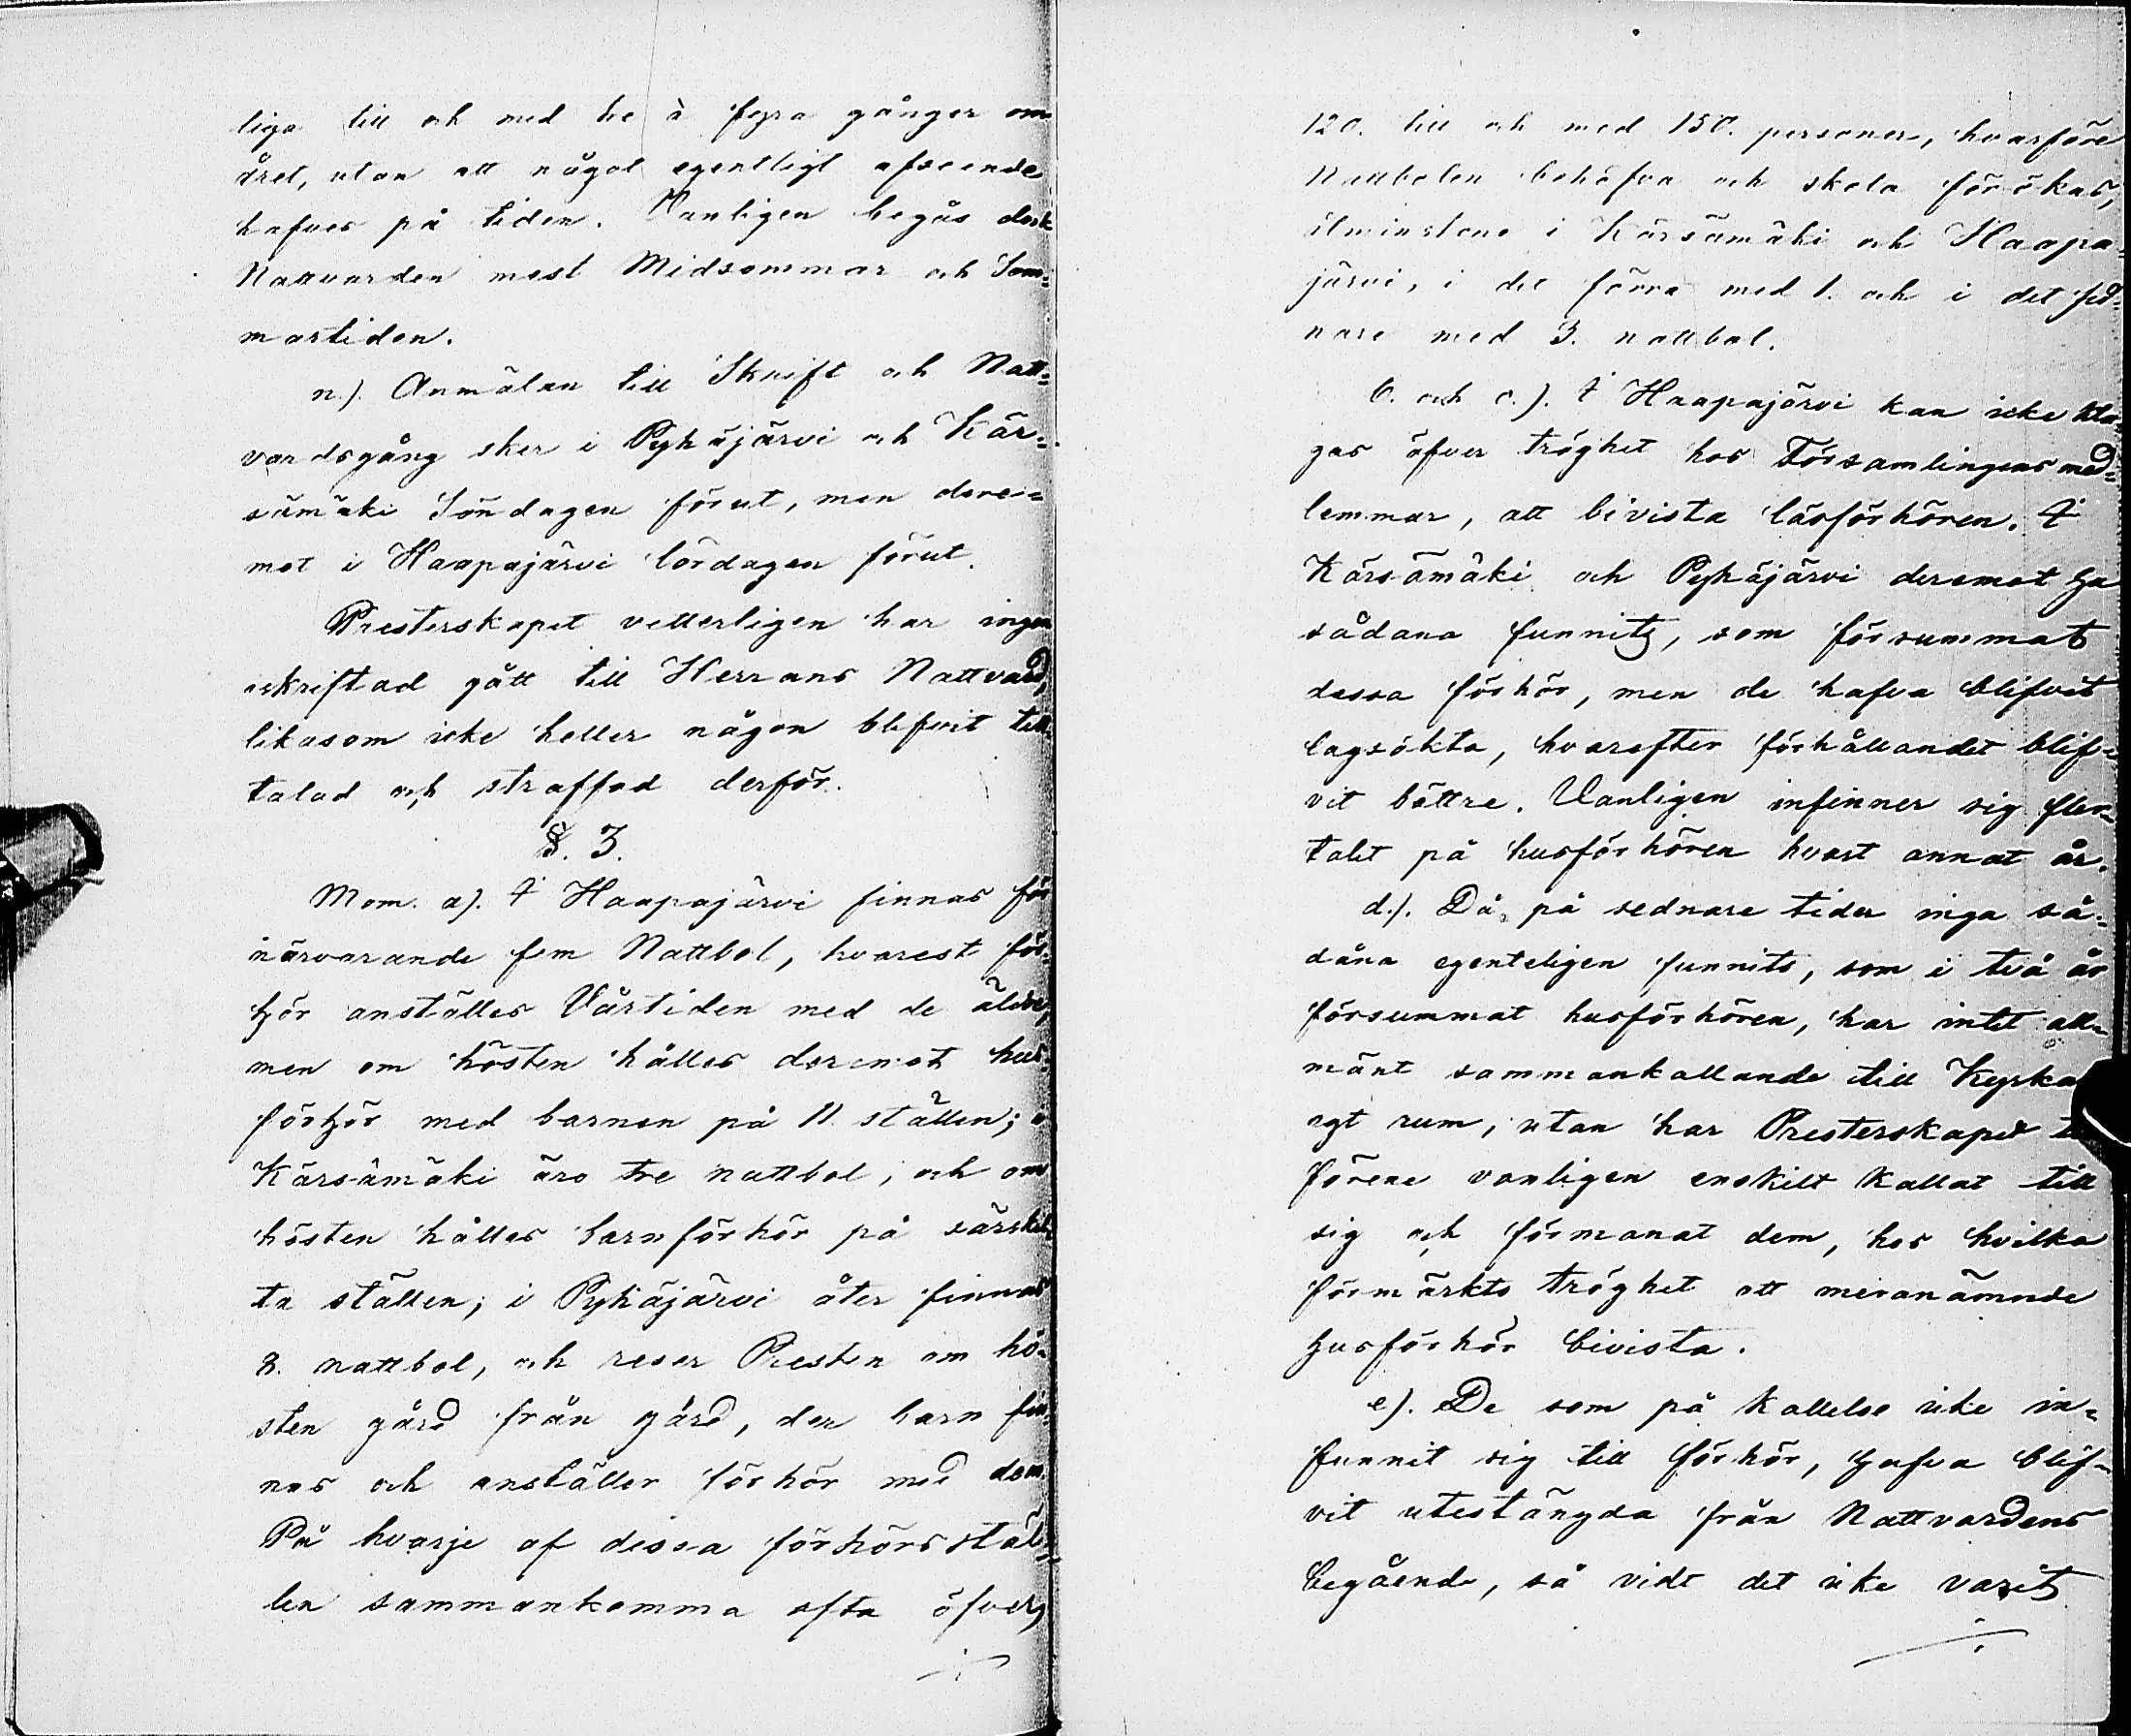 liga till och med tre à fyra gånger om
året, utan att något egentligt afseende
hafves på tiden. Vanligen begås dock
Nattvarden mest Midsommar och Som-
martiden.
n). Anmälan till Skrift och Natt-
vardsgång sker i Pyhäjärvi och Kär-
sämäki Söndagen förut, men dere-
mot i Haapajärvi lördagen förut.
Presterskapet vetterligen har ingen
oskriftad gått till Herrans Nattvard,
likasom icke heller någon blifvit till-
talad och straffad derför.
§. 3.
Mom. a). I Haapajärvi finnas för
närvarande fem Nattbol, hvarest för-
hör anställes Vårtiden med de äldre,
men om hösten hålles deremot hus-
förhör med barnen på 11. ställen; i
Kärsämäki äro tre nattbol, och om
hösten hålles barnförhör på särskil-
ta ställen; i Pyhäjärvi åter finnas
8. nattbol, och reser Presten om hö-
sten gård från gård, der barn fin-
nas och anställer förhör med dem.
På hvarje af dessa förhörsstäl-
len sammankomma ofta öfver
120. till och med 150. personer, hvarföre
Nattbolen behöfva och skola förökas,
åtminstone i Kärsämäki och Haapa-
järvi, i det förra med 1. och i det sed-
nare med 3. nattbol.
b. och c.). I Haapajärvi kan icke kla-
gas öfver tröghet hos Församlingens med-
lemmar, att bivista läsförhören. I
Kärsämäki och Pyhäjärvi deremot ha
sådana funnits, som försummat
dessa förhör, men de hafva blifvit
lagsökta, hvarefter förhållandet blif-
vit bättre. Vanligen infinner sig fler-
talet på husförhören hvart annat år.
d.). Då på sednare tider inga så-
dana egenteligen funnits, som i två år
försummat husförhören, har intet all-
mänt sammankallande till Kyrka
egt rum, utan har Presterskapet
förene vanligen enskilt kallat till
sig och förmanat dem, hos hvilka
förmärkts tröghet att meranämnde
husförhör bivista.
e). De som på kallelse icke in-
funnit sig till förhör, hafva blif-
vit utestängda från Nattvardens
begående, så vidt det icke varit